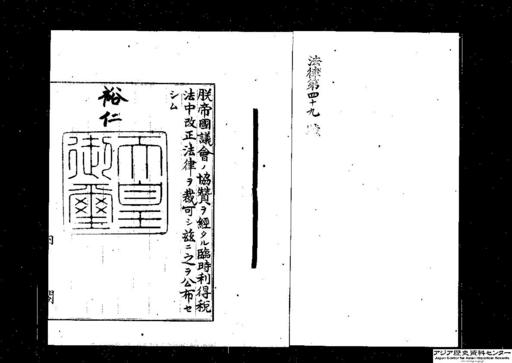 法律第四十九號
朕帝國議會ノ協贊ヲ經タル臨時利得税
法中改正法律ヲ裁可シ茲ニ之ヲ公布セ
シム
裕仁
天皇
御璽
内閣
アジア歴史資料センター
Japan Center for Asian Historical Records